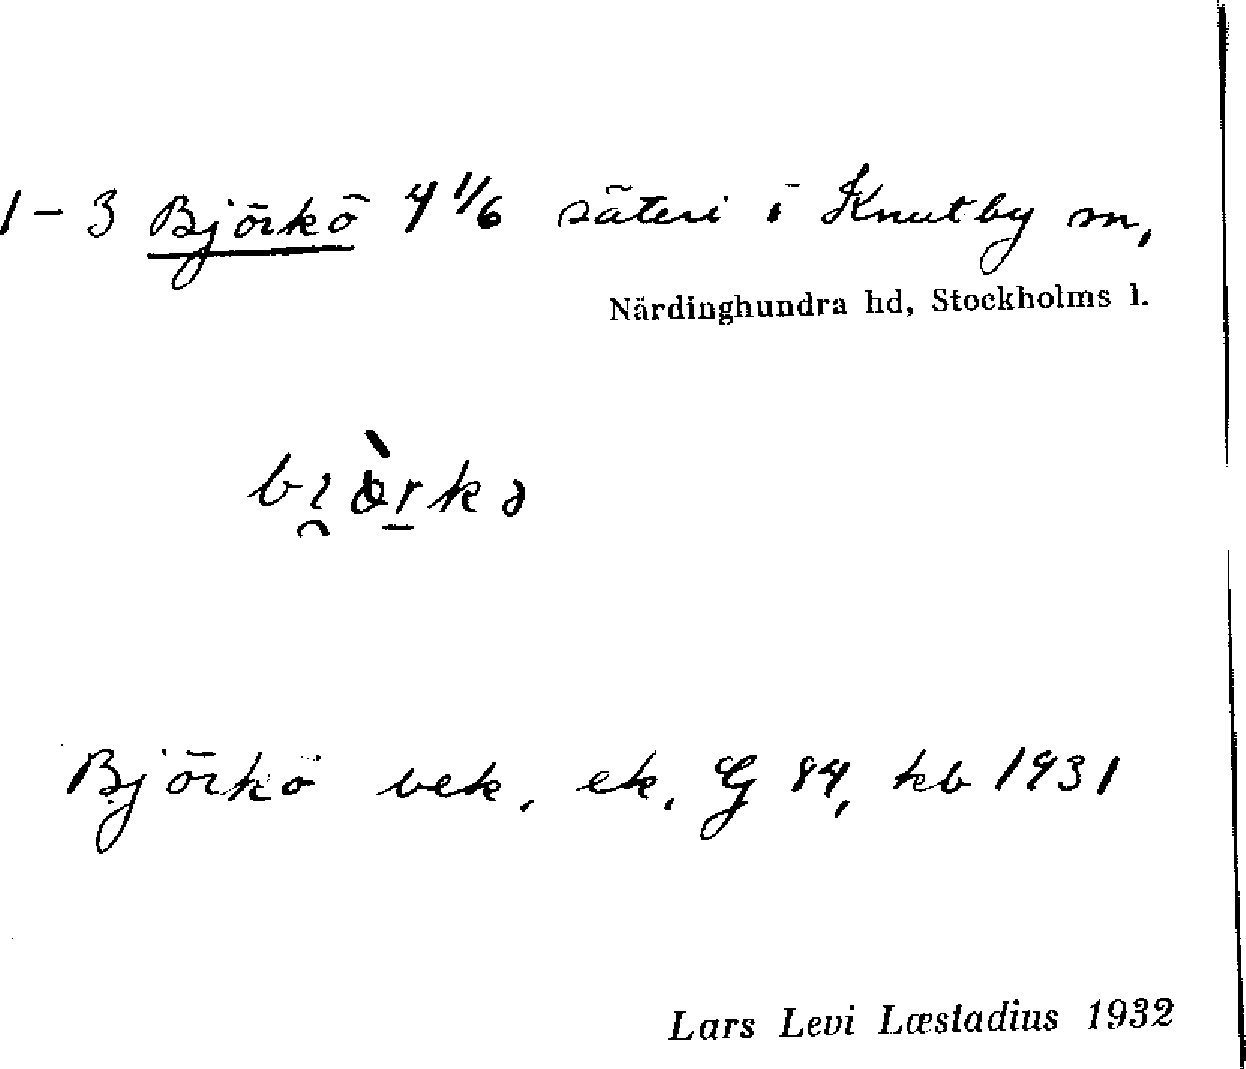 1-3 Björkö 4 1/6 säteri i Knutby sn,
Närdinghundra hd, Stockholms l.
bi̯ö̀rkə
Björkö bek. ek. G 84, kb 1931
Lars Levi Læstadius 1932